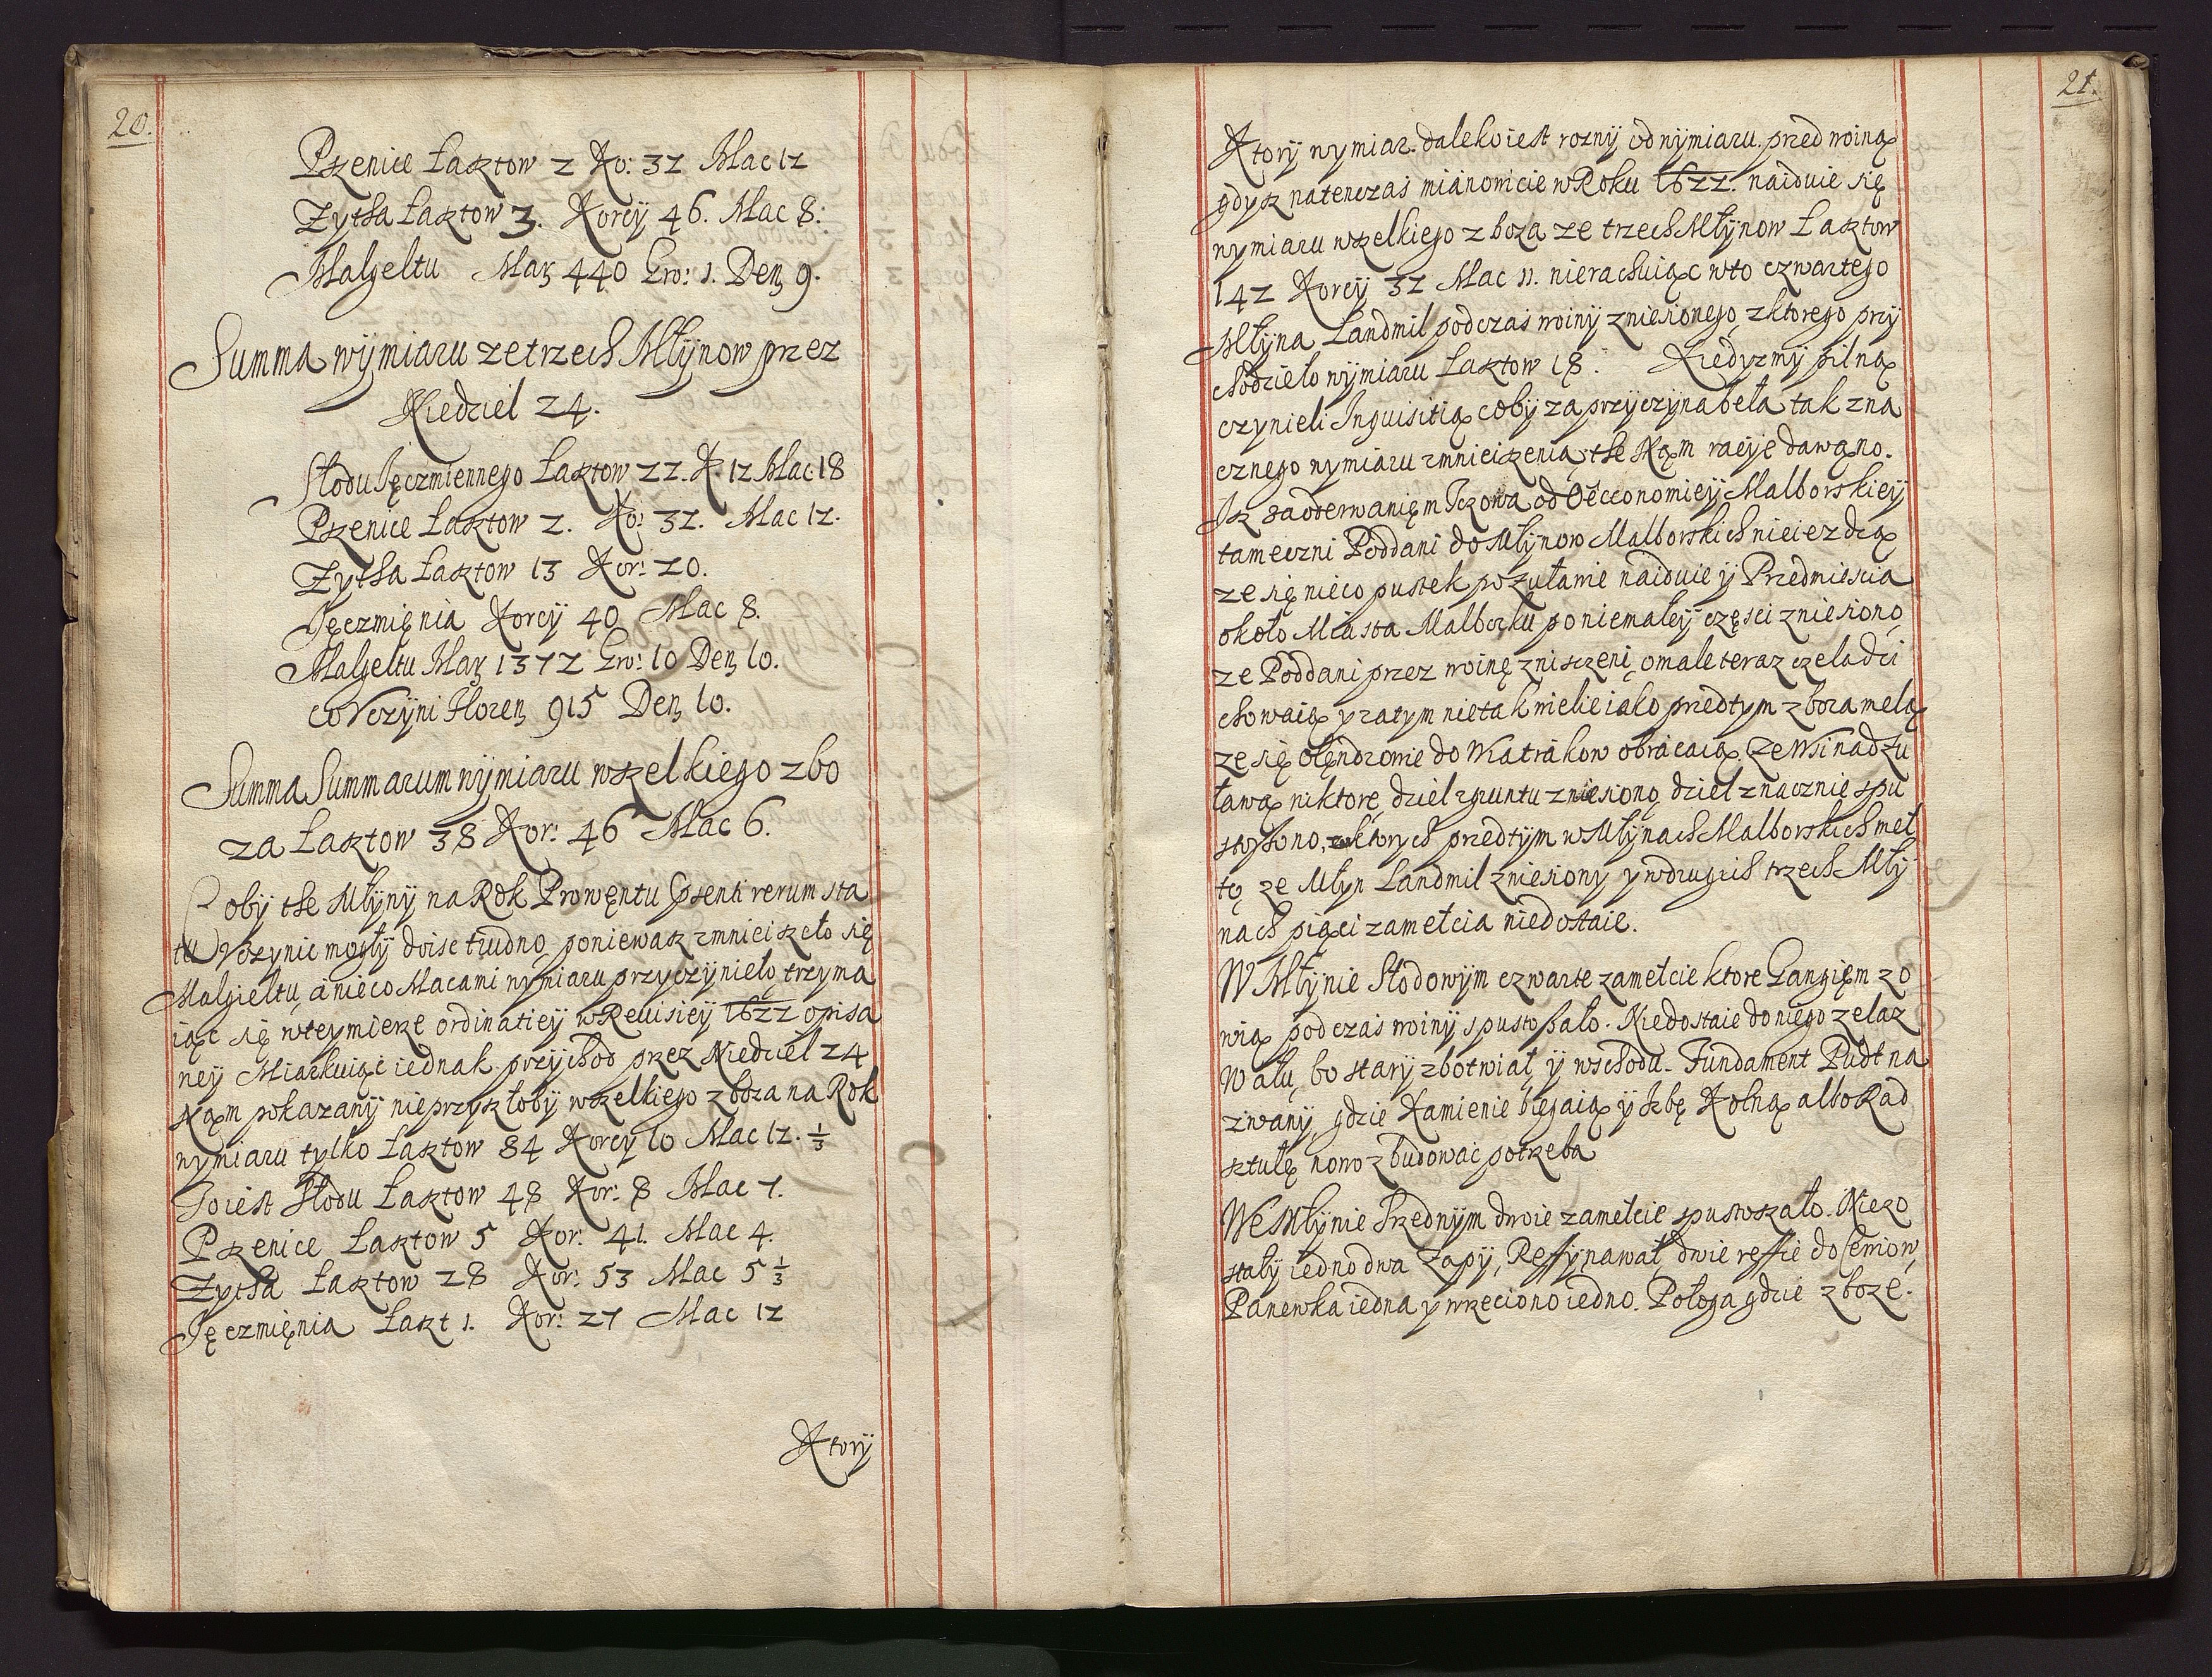 20.
Pszenice Łasztow 2 Ko: 32 Mac 12
Zytha Łasztow 3. Korcÿ 46. Mac 8:
Malgeltu Marz 440 Gro: 1. Den 9.
Summa wÿmiaru ze trzech Młÿnow przez
Niedziel 24.
Słodu Jęczmiennego Łasztow 22. K. 12 Mac 18
Pszenice Łasztow 2. Ko: 32. Mac 12.
Zytha Łasztow 13 Kor: 20.
Jęczmięnia Korcÿ 40 Mac 8.
Malgeltu Marz 1372 Gro: 10 Den 10.
co Vczÿni Floren 915 Den 10.
Summa Summarum wÿmiaru wszelkiego zbo
za Łasztow 38 Kor: 46 Mac 6.
Cobÿ the Młÿnÿ na Rok Prowęntu Psenti rerum sta
tu Vczynic mogłÿ doisc trudno, poniewasz zmnieiszeło się
Malgieltu, a nieco Macami wymiaru przyczÿnieło, trzyma
iąc się w tey mierze ordinatieÿ w Reuisieÿ 1622 opisa
neÿ Miarkuiąc iednak przÿchod przez Niedziel 24
Nąm pokazanÿ nie przyszłobÿ wszelkiego zboza na Rok
wymiaru tylko Łasztow 84 Korcy 10 Mac 12. 1/3
To iest Słodu Łasztow 48 Kor: 8 Mac 7.
Pszenice Łasztow 5 Kor: 41. Mac 4.
Zytha Łasztow 28 Kor: 53 Mac 5 1/3
Jęczmięnia Łaszt 1. Kor: 27 Mac 12
Ktorÿ
21.
Ktorÿ wymiar daleko iest roznÿ od wÿmiaru przed woiną
gdysz na tenczas mianowicie w Roku 1622. naiduie się
wymiaru wszelkiego zboza ze trzech Młÿnow Łasztow
142 Korcÿ 32 Mac 11. nierachuiąc w to czwartego
Młÿna Landmil podczas woinÿ zniesionego, z ktorego przÿ
chodzieło wÿmiaru Łasztow 18. Kiedyzmÿ pilną
czynieli Inquisitią cobÿ za przÿczÿna beła tak zna
cznego wymiaru zmnieiszenia, the Nąm racÿje dawąno.
Isz za oderwanięm Tczowa od Oecconomieÿ Malborskieÿ
tameczni Poddani do Młÿnow Malborskich nieiezdzą
ze się nieco pustek po zuławie naiduie ÿ Przedmiescia
około Miasta Malborku po niemałeÿ częsci zniesiono,
ze Poddani przez woinę zniszczeni, o male teraz czeladzi
chowaią y zatym nie tak wielie iako przedtym zboza melą
ze się olęndrowie do Wiatrakow obracaią. Ze Wsi nad zu
ławą niktore, dziel z gruntu zniesiono, dziel znacznie spu
stoszono, z ktorych przedtÿm w Młÿnach Malborskich meł
tę, ze Młyn Landmil zniesiony y w drugich trzech Młÿ
nach pięci zamełcia niedostaie.
W Młÿnie Słodowÿm czwarte zamełcie ktore Gangięm zo
wią podczas woinÿ spustoszało. Niedostaie do niego zelaz
Wału, bo starÿ zbotwiał, ÿ wschodu. Fundament Pudt na
zwanÿ, gdzie Kamienie biegaią ÿ Izbę Kolną albo Rad
sztubę nowo zbudowac potrzeba
We Młÿnie Przednÿm dwoie zamełcie spustoszało. Niezo
stałÿ iedno dwa Zapÿ, Reffÿ na wał, dwie reffie do Cemiow,
Panewka iedna y wrzeciono iedno. Połoga gdzie zboze.